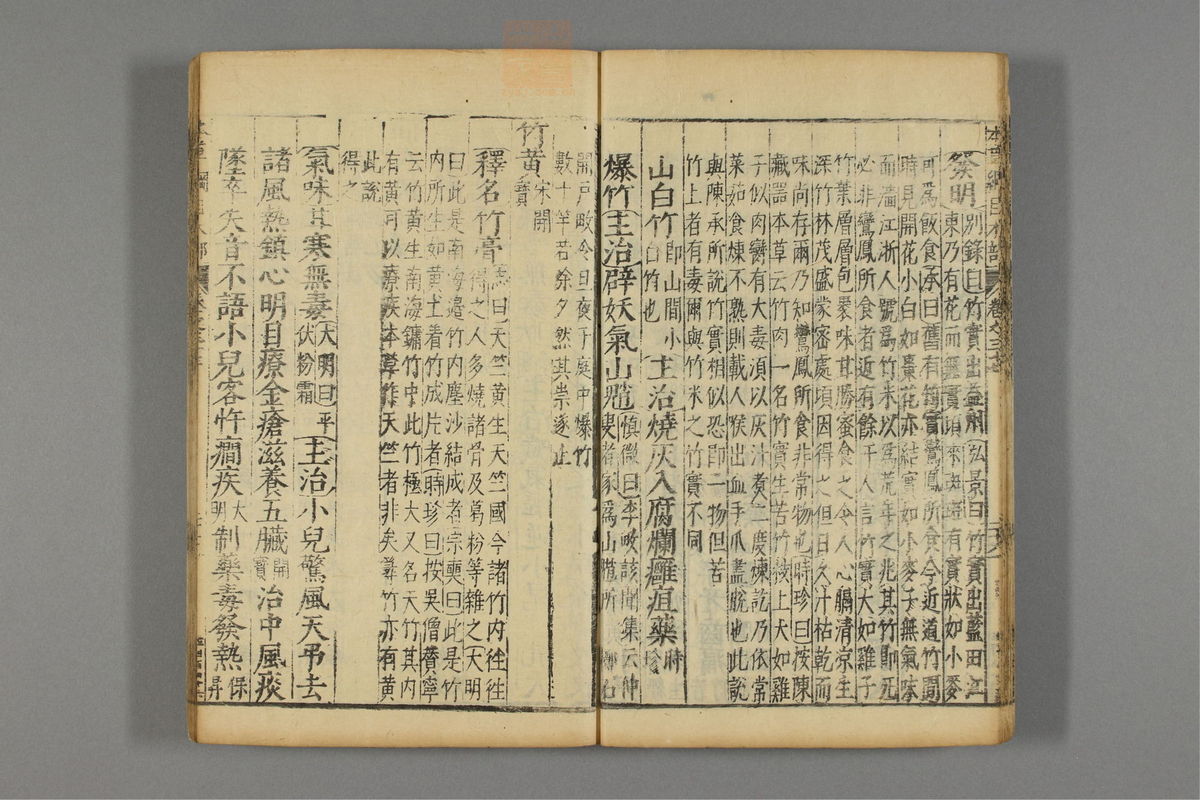 本草綱目木部 卷之三十七
發明別錄曰竹實出益州弘景曰竹實出藍田江
東乃有花而無實頃來斑斑有實狀如小麥
可爲飯食承曰舊有竹實鸞鳳所食今近道竹間
時見開花小白如棗花亦結實如小麥子無氣味
而濇江浙人號爲竹米以爲荒年之兆其竹即死
必非鸞鳳所食者近有餘干人言竹實大如雞子
竹葉層層包裹味甘勝蜜食之令人心膈清涼生
深竹林茂盛蒙密處頃因得之但日久汁枯乾而
味尚存爾乃知鸞鳳所食非常物也時珍曰按陳
藏器本草云竹肉一名竹實生苦竹枝上大如雞
子似肉臠有大毒須以灰汁煮二度煉訖乃依常
菜茹食煉不熟則戟人喉出血手爪盡脫也此說
與陳承所說竹實相似恐即一物但苦
竹上者有毒爾與竹米之竹實不同
山白竹即山間小白竹也 主治燒灰入腐爛癰疽藥時珍
爆竹主治辟妖氣山魈愼微曰李畋該聞集云仲叟者家爲山魈所
開戶畋令旦夜于庭中爆竹
數十竿若除夕然其祟遂止
竹黃宋開寶
釋名竹膏志曰天竺黃生天竺國今諸竹內往往
得之人多燒諸骨及葛粉等雜之大明
曰此是南海邊竹內塵沙結成者宗奭曰此是竹
內所生如黃土着竹成片者時珍曰按吳僧贊寧
云竹黃生南海鏞竹中此竹極大又名天竹其內
有黃可以療疾本草作天竺者非矣䈽竹亦有黃
此說
得之
氣味甘寒無毒大明曰平伏粉霜 主治小兒驚風天弔去
諸風熱鎮心明目療金瘡滋養五臟開寶治中風痰
墜卒失音不語小兒客忤癎疾大明制藥毒發熱保昇